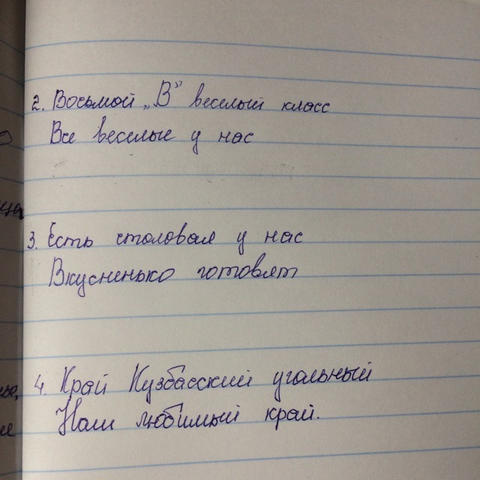 2. Восьмой „В” веселый класс
Все веселые у нас
3. Есть столовая у нас
Вкусненько готовят
4. Край Кузбасский угольный
Наш любимый край.